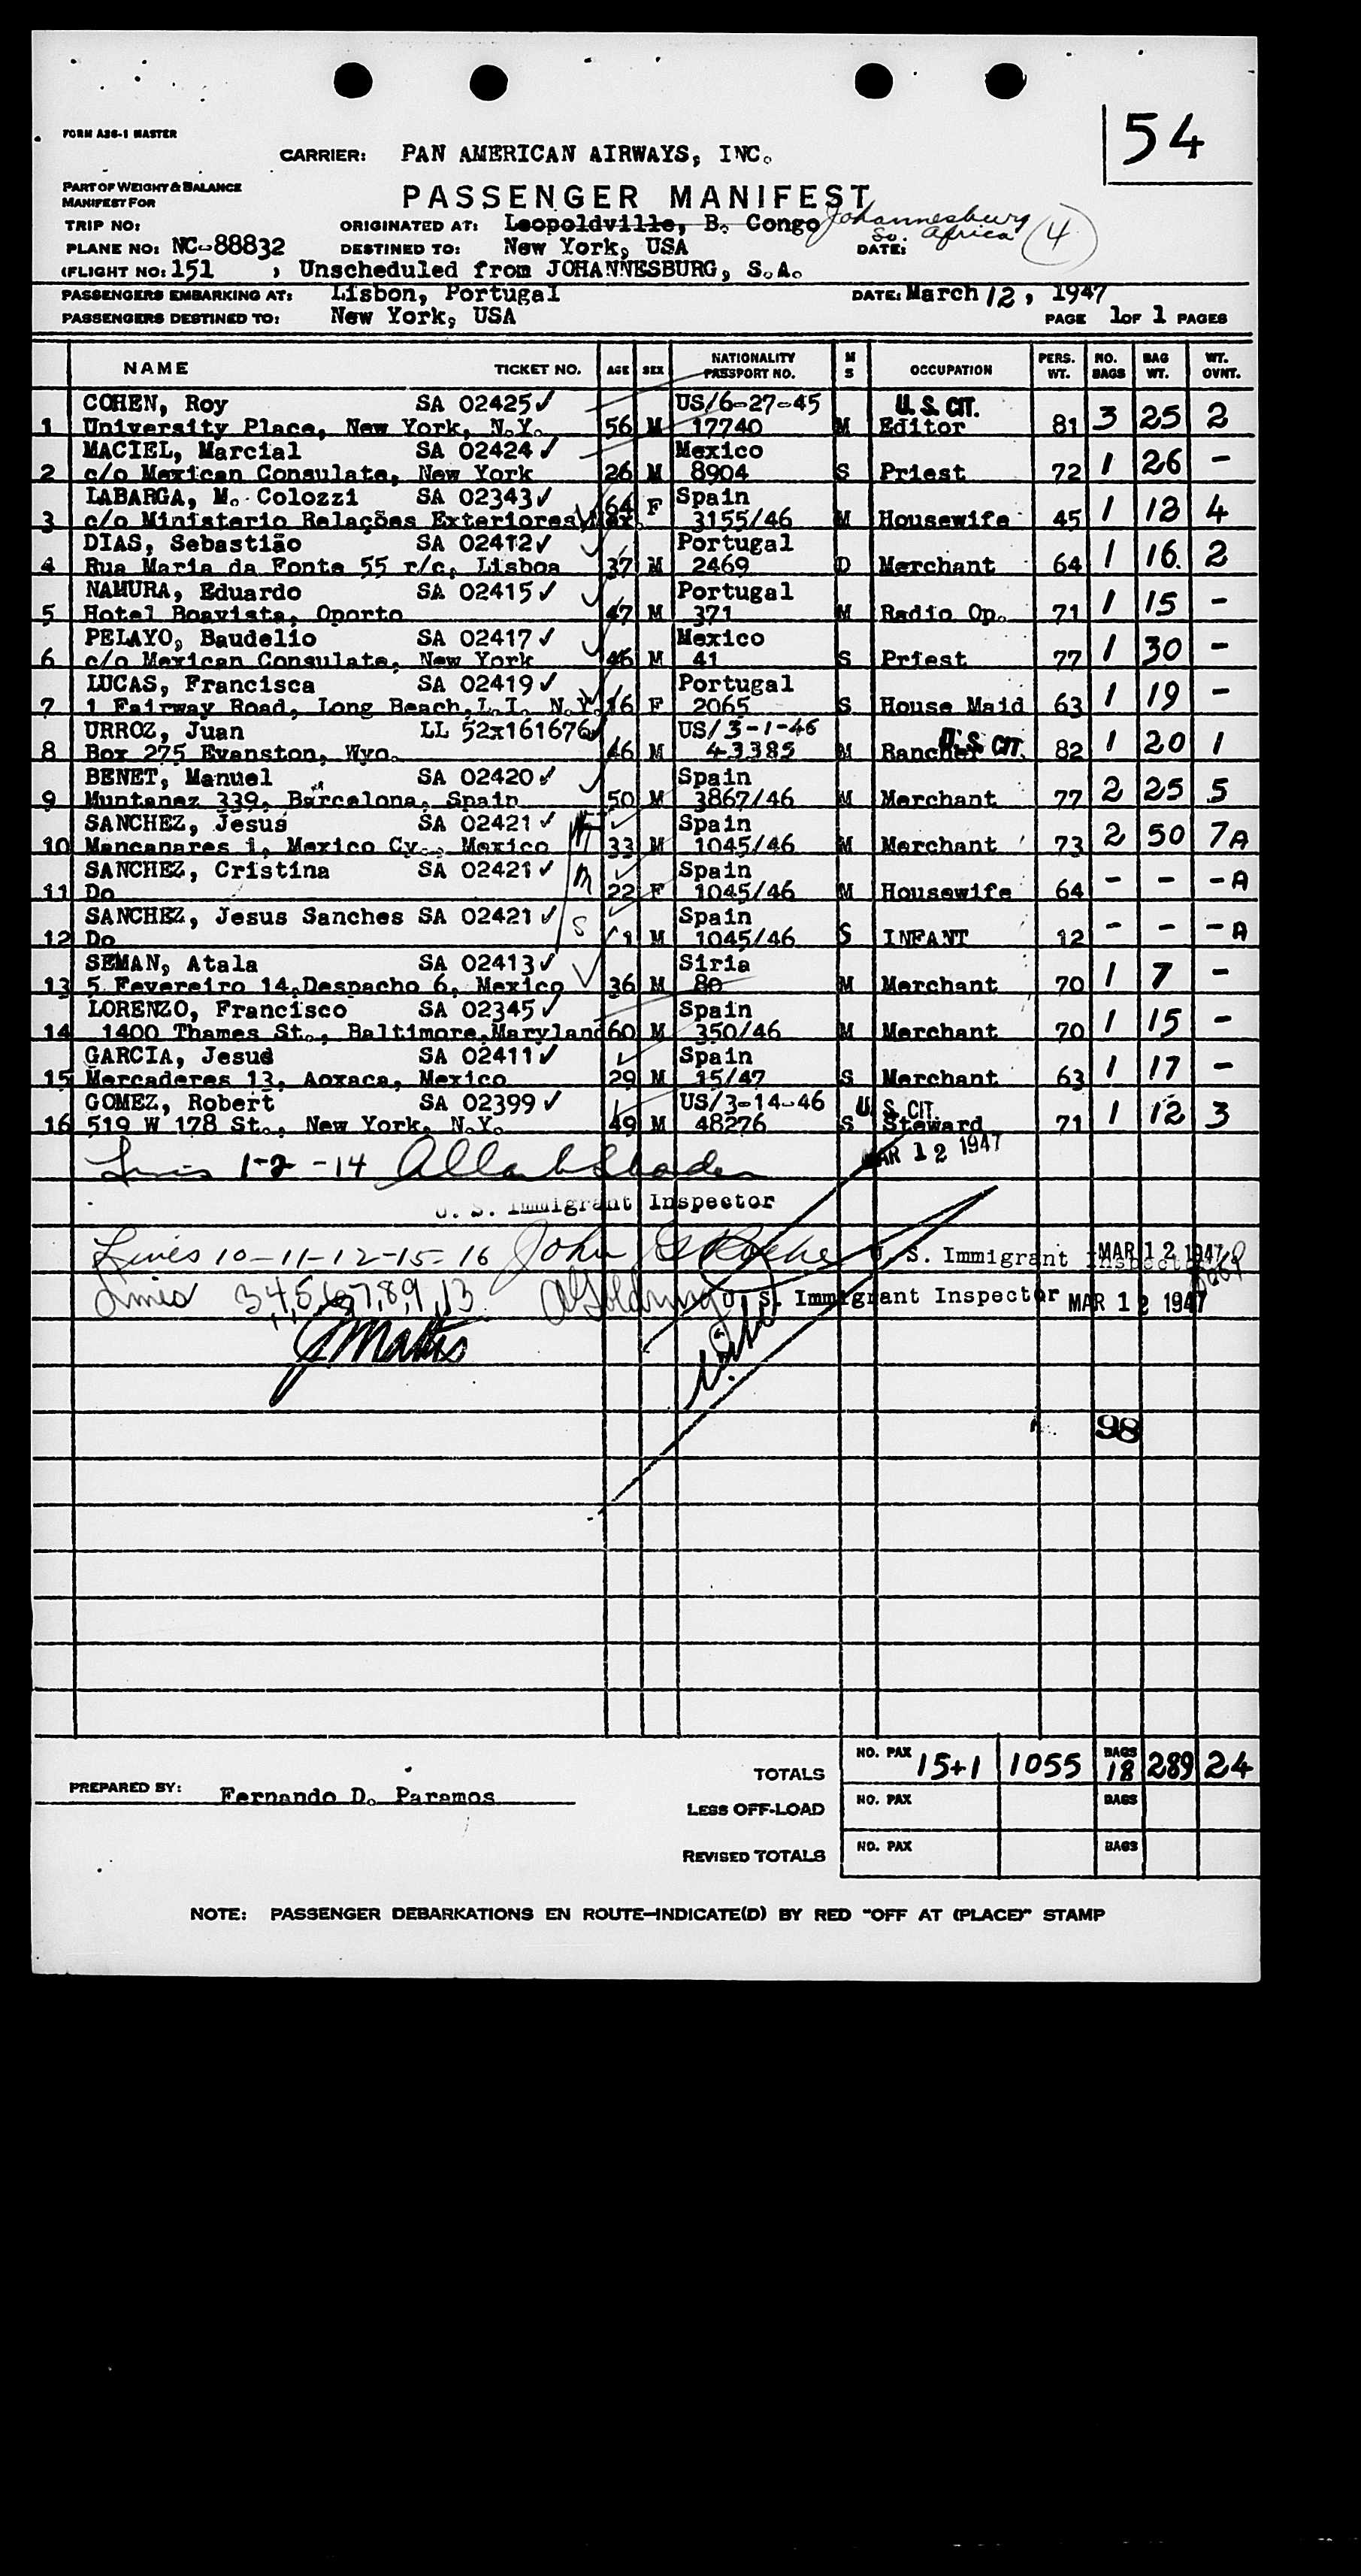 54
FORM A36-1 MASTER
CARRIER: PAN AMERICAN AIRWAYS, INC.
PART OF WEIGHT & BALANCE
MANIFEST FOR
PASSENGER MANIFEST
TRIP NO: ORIGINATED AT: Leopoldville, B. Congo Johannesburg So. Africa (4)
PLANE NO: NC-88832 DESTINED TO: New York, USA DATE:
(FLIGHT NO: 151 ) Unscheduled from JOHANNESBURG, S.A.
PASSENGERS EMBARKING AT: Lisbon, Portugal DATE: March 12, 1947
PASSENGERS DESTINED TO: New York, USA PAGE 1 OF 1 PAGES
NAME TICKET NO. AGE SEX NATIONALITY PASSPORT NO. M S OCCUPATION PERS. WT. NO. BAGS BAG WT. WT. OVNT.
COHEN, Roy SA 02425✓ US/6-27-45 U.S. CIT.
1 University Place, New York, N.Y. 56 M 17740 M Editor 81 3 25 2
MACIEL, Marcial SA 02424✓ Mexico
2 c/o Mexican Consulate, New York 26 M 8904 S Priest 72 1 26 -
LABARGA, M. Colozzi SA 02343✓ Spain
3 c/o Ministerio Relações Exteriores Mex. 64 F 3155/46 M Housewife 45 1 12 4
DIAS, Sebastião SA 02412✓ Portugal
4 Rua Maria da Fonte 55 r/c, Lisboa 37 M 2469 D Merchant 64 1 16 2
NAMURA, Eduardo SA 02415✓ Portugal
5 Hotel Boavista, Oporto 47 M 371 M Radio Op. 71 1 15 -
PELAYO, Baudelio SA 02417✓ Mexico
6 c/o Mexican Consulate, New York 46 M 41 S Priest 77 1 30 -
LUCAS, Francisca SA 02419✓ Portugal
7 1 Fairway Road, Long Beach, L.I. N.Y. 16 F 2065 S House Maid 63 1 19 -
URROZ, Juan LL 52x161676✓ US/3-1-46 U.S. CIT.
8 Box 275 Evanston, Wyo. 46 M 43385 M Rancher 82 1 20 1
BENET, Manuel SA 02420✓ Spain
9 Muntanez 339, Barcelona, Spain 50 M 3867/46 M Merchant 77 2 25 5
SANCHEZ, Jesus SA 02421✓ Spain
10 Mancanares 1, Mexico Cy., Mexico M 33 M 1045/46 M Merchant 73 2 50 7A
SANCHEZ, Cristina SA 02421✓ Spain
11 Do M 22 F 1045/46 M Housewife 64 - - -A
SANCHEZ, Jesus Sanches SA 02421✓ Spain
12 Do S 1 M 1045/46 S INFANT 12 - - -A
SEMAN, Atala SA 02413✓ Siria
13 5 Fevereiro 14, Despacho 6, Mexico 36 M 80 M Merchant 70 1 7 -
LORENZO, Francisco SA 02345✓ Spain
14 1400 Thames St., Baltimore, Maryland 60 M 350/46 M Merchant 70 1 15 -
GARCIA, Jesus SA 02411✓ Spain
15 Mercaderes 13, Aoxaca, Mexico 29 M 15/47 S Merchant 63 1 17 -
GOMEZ, Robert SA 02399✓ US/3-14-46 U.S. CIT.
16 519 W 178 St., New York, N.Y. 49 M 48276 S Steward 71 1 12 3
Lines 1-2-14 MAR 12 1947
U. S. Immigrant Inspector
Lines 10-11-12-15-16 John U. S. Immigrant Inspector MAR 12 1947
Lines 3,4,5,6,7,8,9,13 U. S. Immigrant Inspector MAR 12 1947
98
TOTALS NO. PAX 15+1 1055 BAGS 18 289 24
PREPARED BY: Fernando D. Paramos
LESS OFF-LOAD NO. PAX BAGS
REVISED TOTALS NO. PAX BAGS
NOTE: PASSENGER DEBARKATIONS EN ROUTE—INDICATE(D) BY RED "OFF AT (PLACE)" STAMP